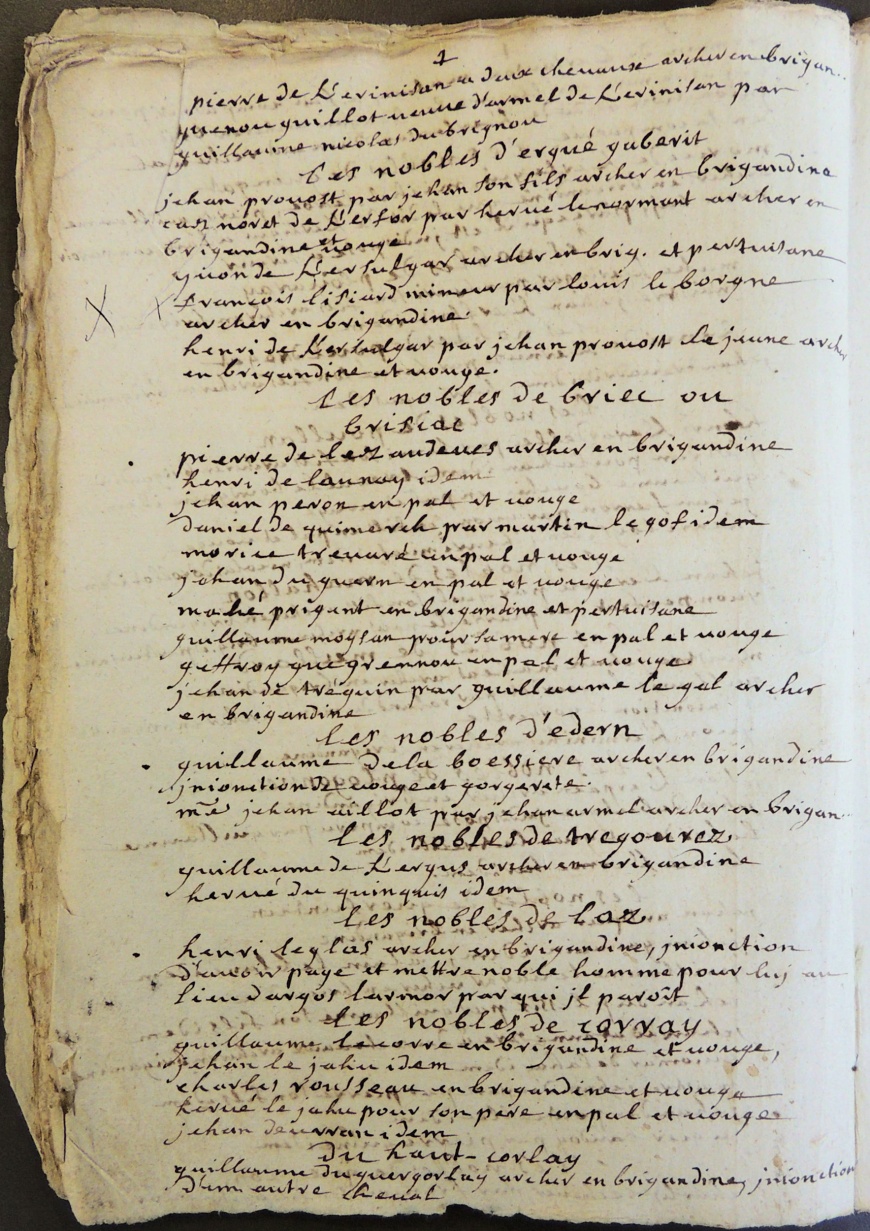 1
pierre de Kerinisan a deux chevaux archer en brigan..
guenou guillot veuve d'armel de Kerinisan par
guillaume nicolas du brignou
les nobles d'ergué gaberit
jehan prouost par jehan son fils archer en brigandine
noret de Kerfor par hervé lenormant archer en
brigandine et vouge
yuon de Kersulgar archer en brig. et pertuisane
françois lisiard mineur par louis le borgne
archer en brigandine
henri de Kersulgar par jehan prouost le jeune archer
en brigandine et vouge.
les nobles de briec ou
brisiac
pierre de lezandeues archer en brigandine
henri de launay idem
jehan peron en pal et vouge
daniel de quimerch par martin le gof idem
morice trevaré en pal et vouge
jehan du guern en pal et vouge
mahé prigent en brigandine et pertuisane
guillaume moysan pour sa mere en pal et vouge
geffroy guegrennou en pal et vouge
jehan de tréguin par guillaume le gal archer
en brigandine
les nobles d'edern
guillaume de la boessiere archer en brigandine
jnionction de vouge et gorgerete.
me jehan aillot par jehan armel archer en brigan.
les nobles de tregourez
guillaume de Kergus archer en brigandine
hervé du quinquis idem
les nobles de laz
henri le glas archer en brigandine, jnionction
d'auoir page et mettre noble homme pour luj au
lieu d'argos larmor par qui jl paroît
les nobles de corray
guillaume le corre en brigandine et vouge,
jehan le jahu idem
charles rousseau en brigandine et vouge
hervé le jahu pour son pere en pal et vouge
jehan idem
du haut-corlay
guillaume du guergorlay archer en brigandine, jnionction
d'un autre cheval